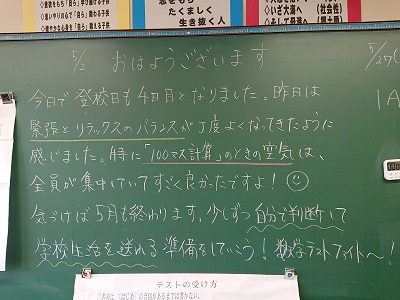 たくましく
生き抜く人
いざ大海へ (社会性)
5/2 おはようございます
5/27(
今日で登校日も4日目となりました。昨日は
1A
緊張とリラックスのバランスが丁度よくなってきたように
感じました。特に「100マス計算」のときの空気は、
全員が集中していてすごく良かったですよ!
気づけば5月も終わります。少しずつ自分で判断して
学校生活を送れる準備をしていこう!数学テストファイト〜!
テストの受け方